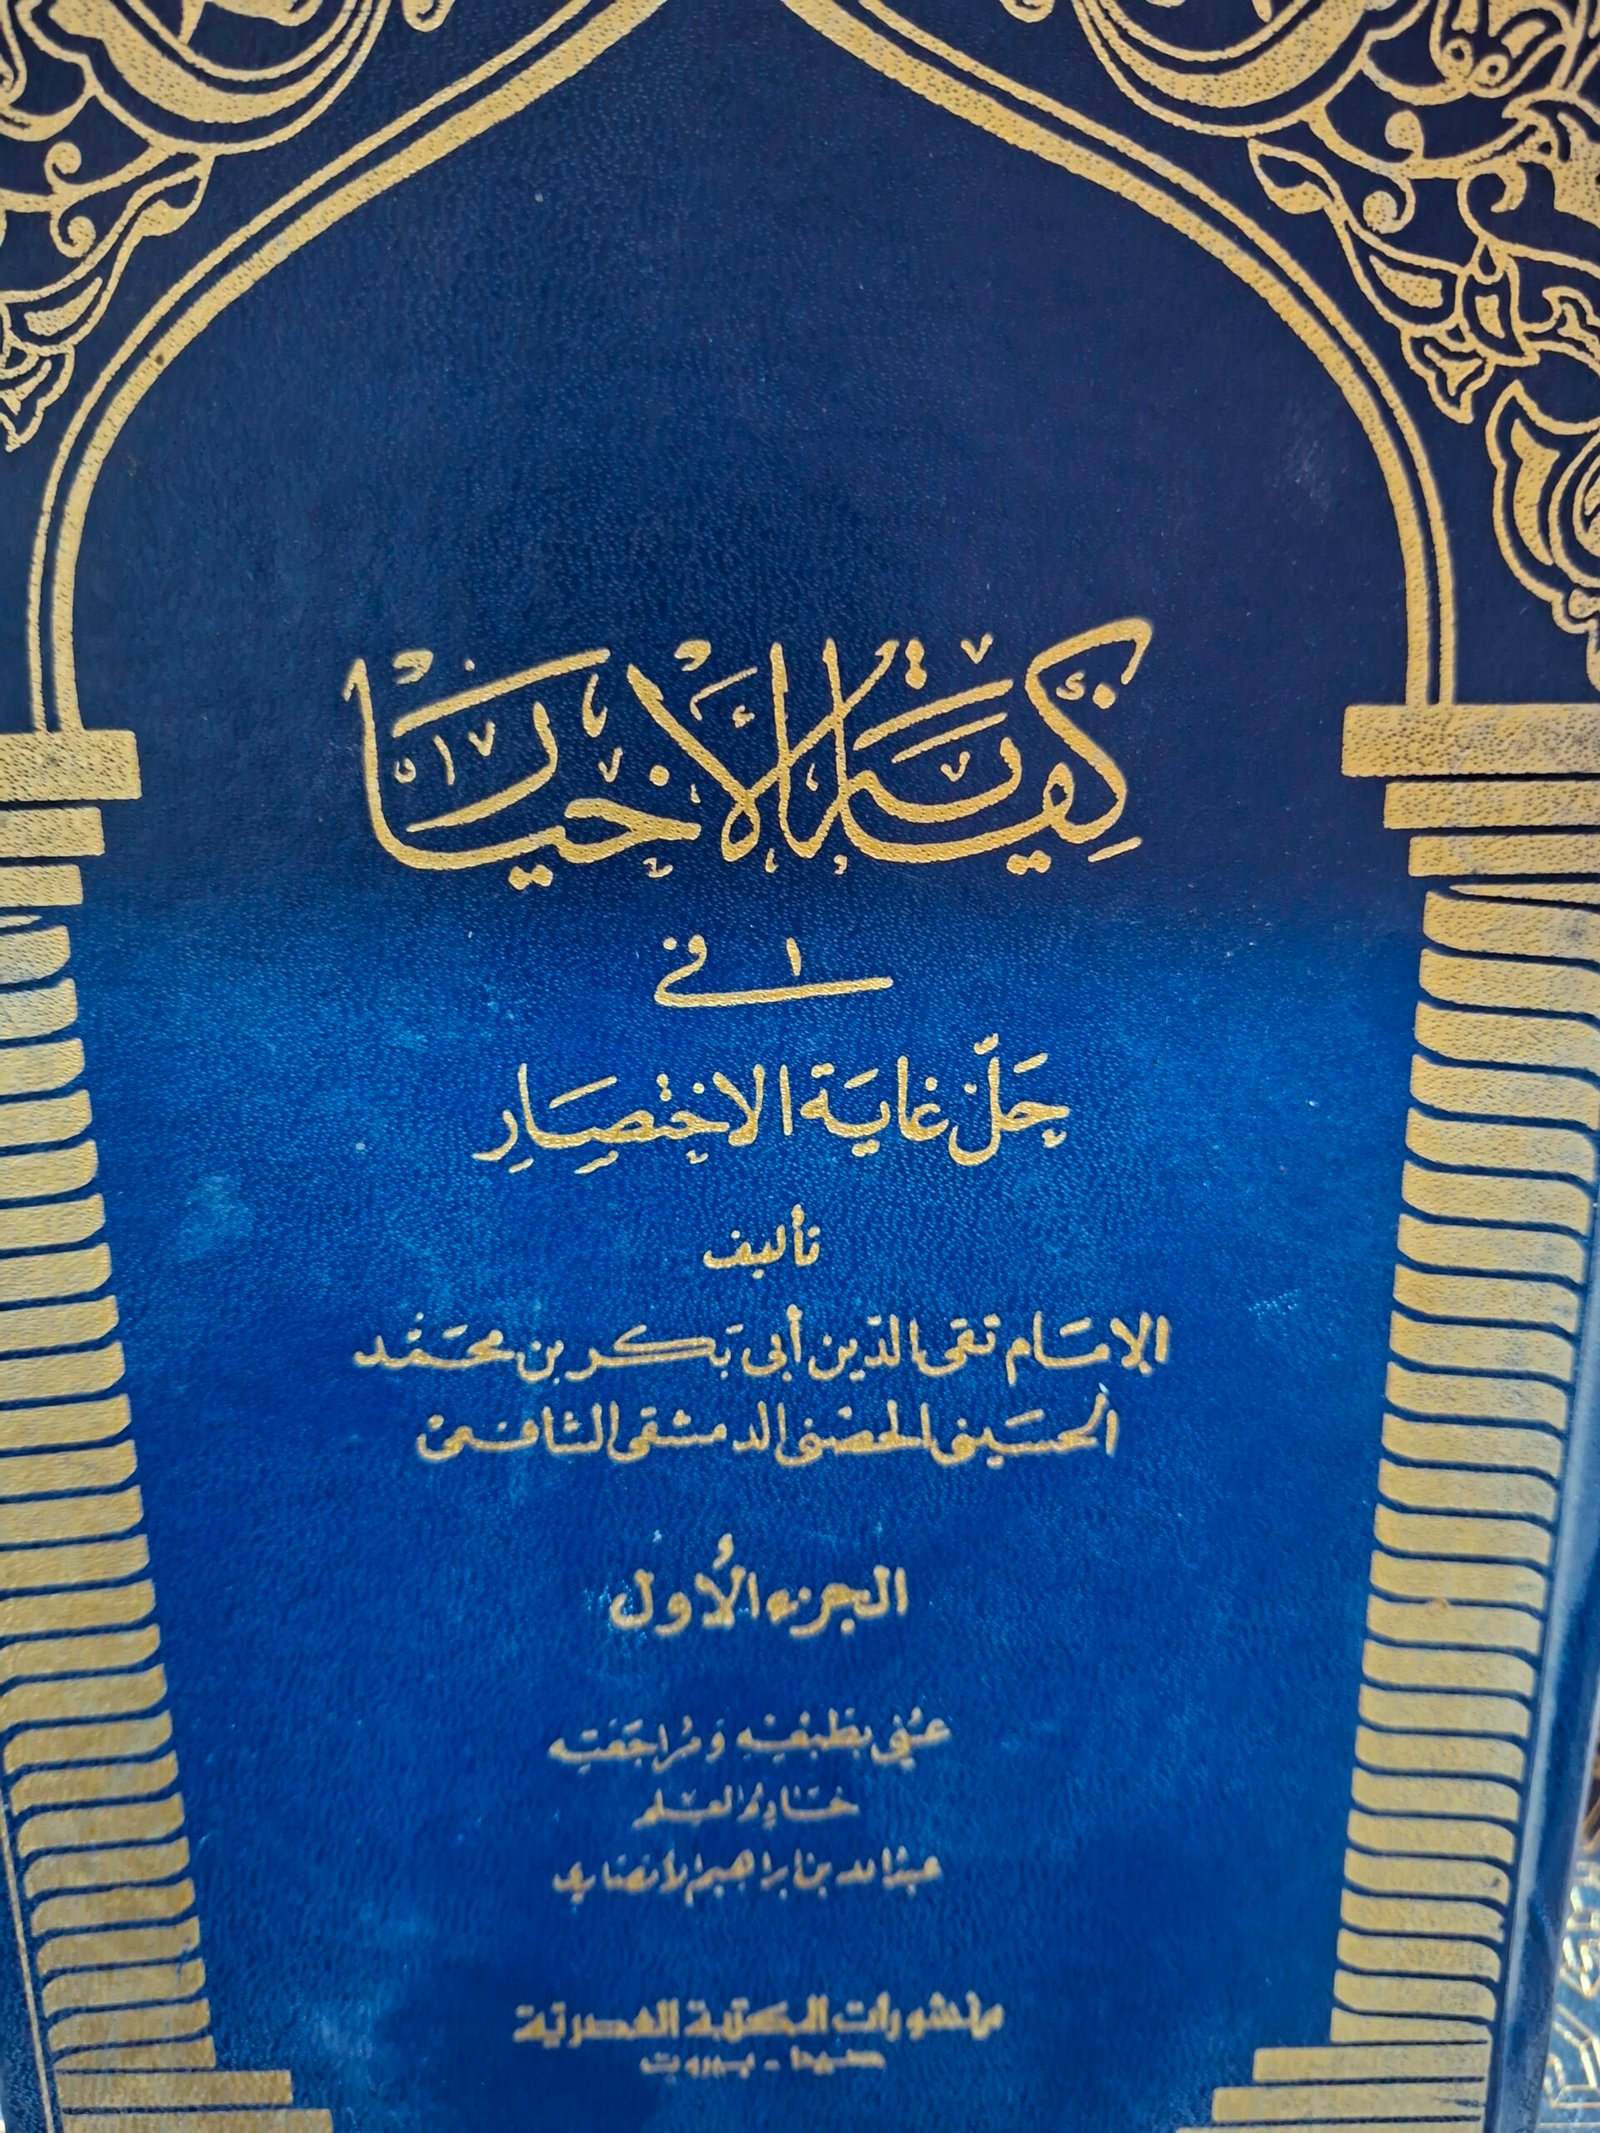 كِفَايَةُ الأَخْيَار
في
حَلّ غايَة الاخْتِصَارِ
تأليف
الإمَام تقى الدّين أبى بَكر بن محَمَّد
الحسَينى الحصْنى الدمشقى الشافعى
الجزء الأوُل
عُنِيَ بطَبْعِهِ وَمُرَاجَعَتِه
خَادِمُ العِلم
عبد الله بن إبراهيم الأنصَاري
منشورات المكتبة العصرية
صيدا - بيروت